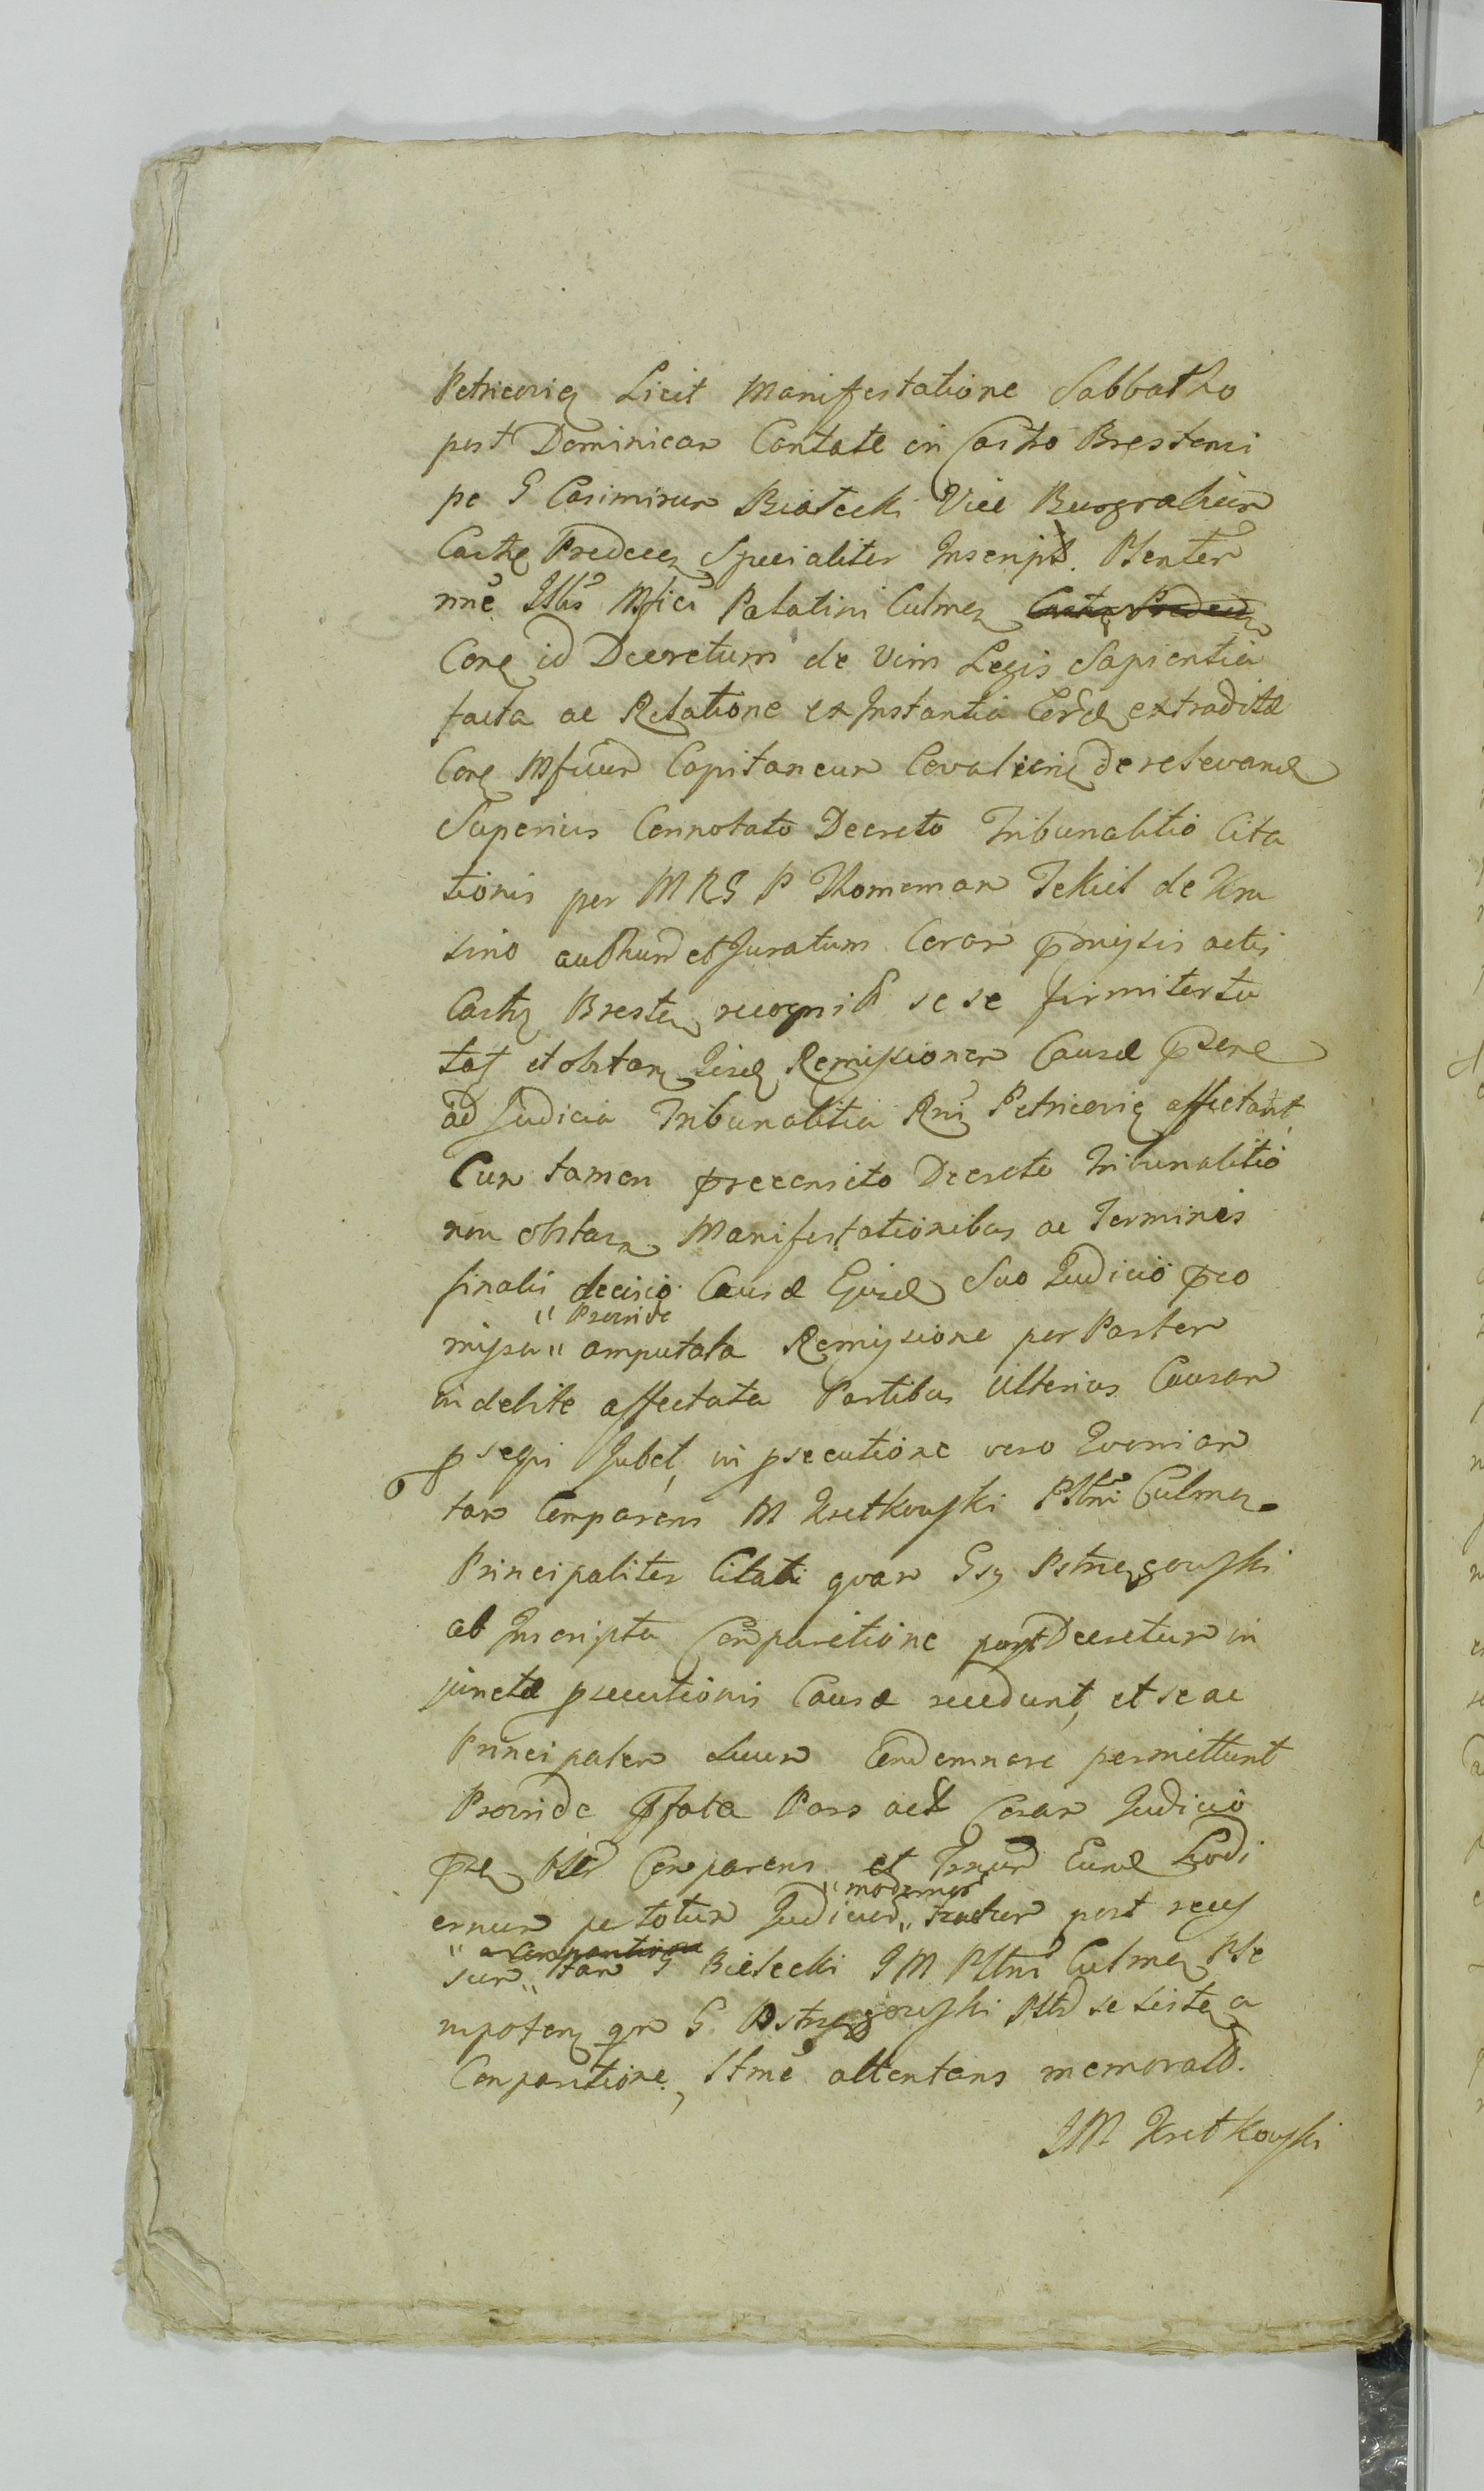 Petricovien Licit Manifestatione Sabbatho
post Dominicam Cantate in Castro Brestensi
pe G Casimirum Białecki Vice Burgrabium
Castr Predecen Specialiter Inscript. Ptenter
nne Illris Mfici Palatini Culmen
Cone id Decretum de Vim Legis Sapientia
facta ac Relatione ex Instantia extraditæ
Cone Mficum Capitaneum Covaliens de relevand
Superius Connotato Decreto Tribunalitio Cita
tionis per MRS P Thomam Tekiel de Kru
sino authum et Juratum Coram pmissis actis
Castr Bresten recognit se se firmiter tu
tat et obstan Remissionem Causæ psene
ad Judicia Tribunalitia Rni Petricovien affectant,
Cum tamen precensito Decreto Tribunalitio
non obstan Manifestationibus ac Terminis
finalis decisio Causæ Ejusd Suo Judicio pro
" Proinde
missa " amputata Remissione per Partem
indebite affectata Partibus Ulterius Causam
psequi Jubet, in psecutione vero Qvoniam
tam Comparens M Kretkowski Pltni Culmen
Principaliter Citati quam Gsy Pstrągowski
ab Inscripta Comparitione post Decretum in
junctæ psecutionis Causæ recedunt, et se ac
Principalem Suum Condemnare permittunt
Proinde pfata Pars act Coram Judicio
Comparens et Hodi
" modernor
ernum pe totum Judicior " tractum post reces
" a Comparitione
sum " tam G Bielecki I M Pltni Culmen Ple
nipoten qm G. Pstrągowski Pltd se sisten a
Comparitione, Itme attentans memorato.
I M Kretkowski